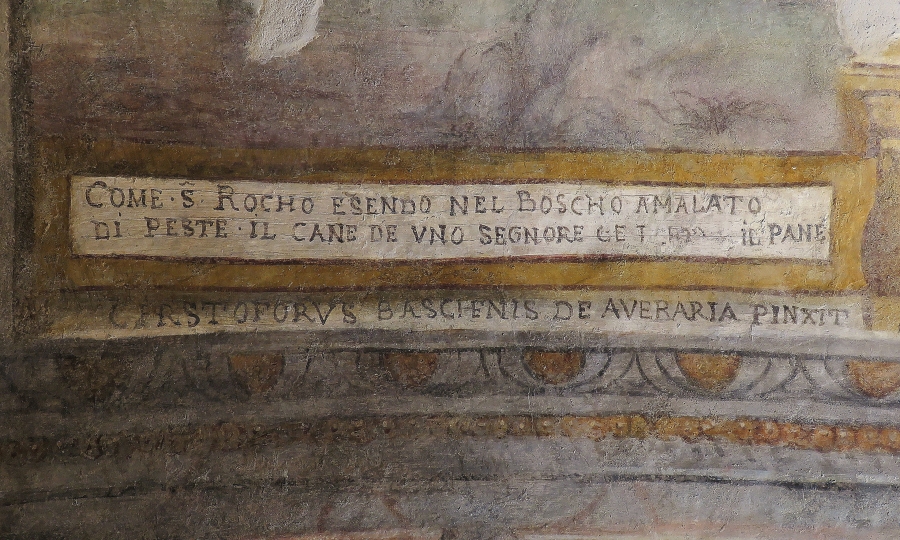 COME · S̃ ROCHO ESENDO NEL BOSCHO AMALATO
DI PESTE · IL CANE DE VNO SEGNORE GE IL PANE
CFRSTOFORVS BASCHENIS DE AVERARIA PINXIT